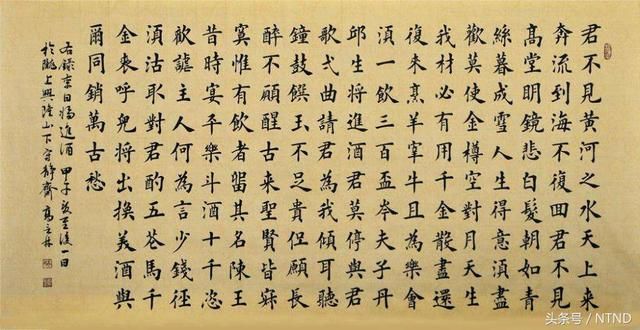 君不見黄河之水天上來
奔流到海不復回君不見
髙堂明鏡悲白髮朝如青
絲暮成雪人生得意湏盡
歡莫使金樽空對月天生
我材必有用千金散盡還
復来烹羊宰牛且為樂會
湏一飲三百盃岑夫子丹
邱生将進酒君莫停與君
歌弌曲請君為我傾耳聽
鐘鼓饌玉不足貴但願長
醉不願醒古来聖賢皆寂
寞惟有飲者留其名陳王
昔時宴平樂斗酒十千恣
歡謔主人何為言少錢径
湏沽取對君酌五花馬千
金裘呼兒将出換美酒與
爾同銷萬古愁
右録李白将進酒 甲子夏至後一日
於隴上興隆山下守静齋 高
头条号 / NTND